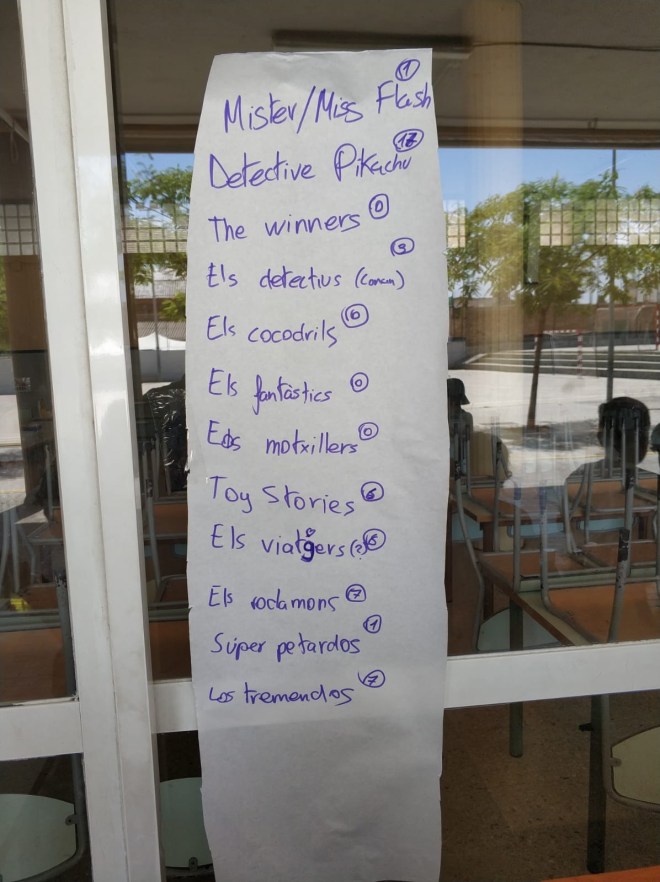 Mister/Miss Flash 1
Detective Pikachu
The winners 0
Els detectius (Conan) 9
Els cocodrils 0
Els fantàstics 0
Els motxillers 0
Toy Stories 6
Els viatgers (?)
Els rodamons 7
Súper petardos 1
Los tremendos 7